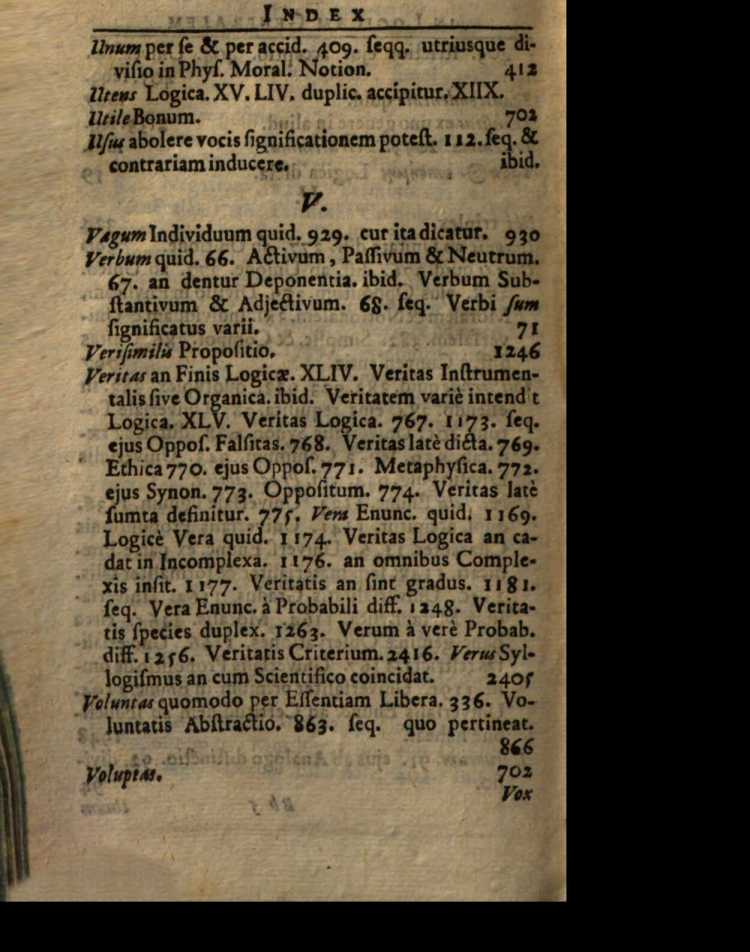 INDEX
Unum per se & per accid. 409. seqq. utriusque di-
visio in Phys. Moral. Notion. 412
Utens Logica. XV. LIV. duplic. accipitur. XIIX.
Utile Bonum. 702
Usus abolere vocis significationem potest. 112. seq. &
contrariam inducere. ibid.
V.
Vagum Individuum quid. 929. cur ita dicatur. 930
Verbum quid. 66. Activum, Passivum & Neutrum.
67. an dentur Deponentia. ibid. Verbum Sub-
stantivum & Adjectivum. 68. seq. Verbi sum
significatus varii. 71
Verisimilis Propositio. 1246
Veritas an Finis Logicæ. XLIV. Veritas Instrumen-
talis sive Organica. ibid. Veritatem variè intend t
Logica. XLV. Veritas Logica. 767. 1173. seq.
ejus Oppos. Falsitas. 768. Veritas latè dicta. 769.
Ethica 770. ejus Oppos. 771. Metaphysica. 772.
ejus Synon. 773. Oppositum. 774. Veritas latè
sumta definitur. 775. Vera Enunc. quid. 1169.
Logicè Vera quid. 1174. Veritas Logica an ca-
dat in Incomplexa. 1176. an omnibus Comple-
xis insit. 1177. Veritatis an sint gradus. 1181.
seq. Vera Enunc. à Probabili diff. 1248. Verita-
tis species duplex. 1263. Verum à verè Probab.
diff. 1256. Veritatis Criterium. 2416. Verus Syl-
logismus an cum Scientifico coincidat. 2405
Voluntas quomodo per Essentiam Libera. 336. Vo-
luntatis Abstractio. 863. seq. quo pertineat.
866
Voluptas. 702
Vox